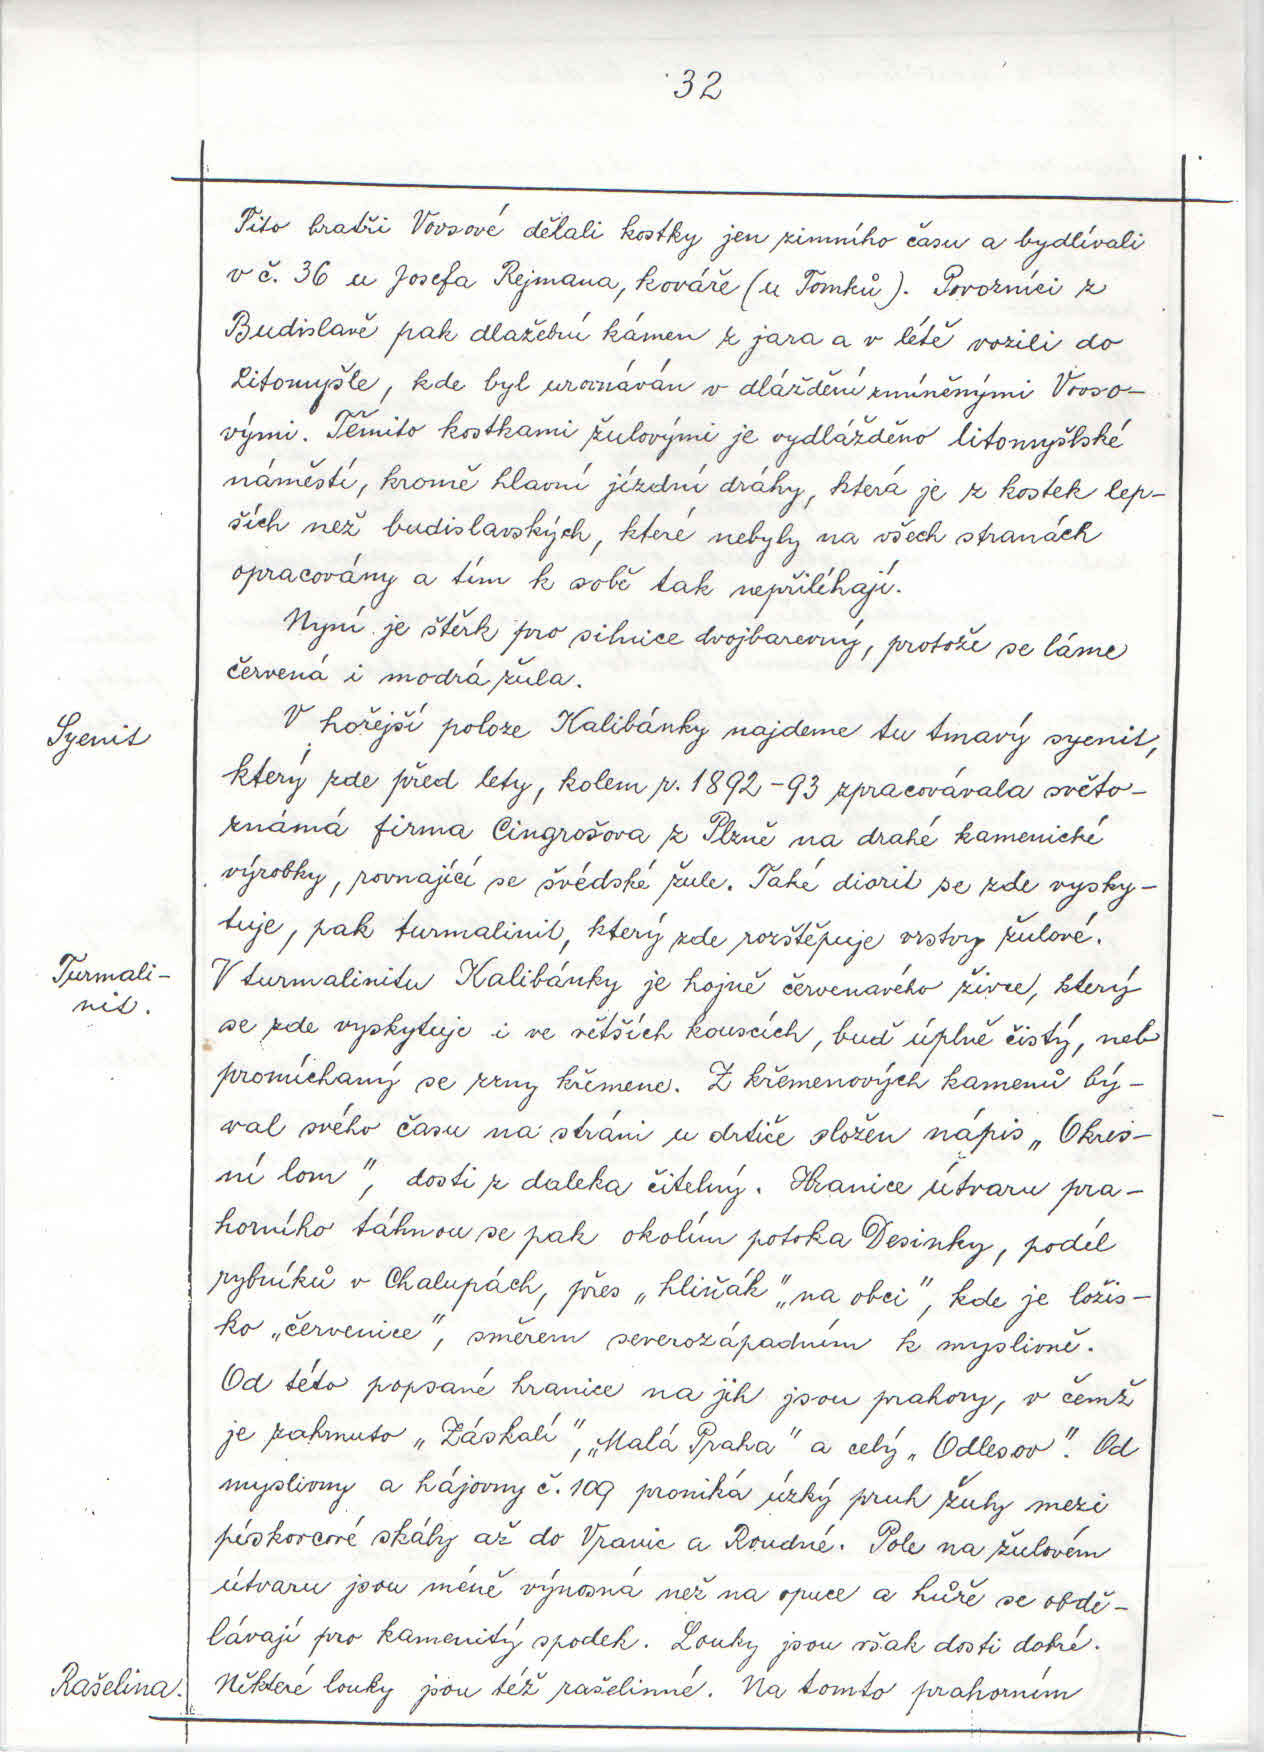 32
Tito bratři Vovsové dělali kostky jen zimního času a bydlívali
v č. 36 u Josefa Rejmana, kováře (u Tomků). Povozníci z
Budislavě pak dlažební kámen z jara a v létě vozili do
Litomyšle, kde byl urovnáván v dláždění zmíněnými Vovso-
vými. Těmito kostkami žulovými je vydlážděno litomyšlské
náměstí, kromě hlavní jízdní dráhy, která je z kostek lep-
ších než budislavských, které nebyly na všech stranách
opracovány a tím k sobě tak nepřiléhají.
Nyní je štěrk pro silnice dvojbarevný, protože se láme
červená i modrá žula.
Syenit
V hořejší poloze Kalibánky najdeme tu tmavý syenit,
který zde před lety, kolem r. 1892-93 zpracovávala světo-
známá firma Cingrošova z Plzně na drahé kamenické
výrobky, rovnající se švédské žule. Také diorit se zde vysky-
tuje, pak turmalinit, který zde rozštěpuje vrstvy žulové.
Turmali-
nit.
V turmalinitu Kalibánky je hojně červenavého živce, který
se zde vyskytuje i ve větších kouscích, buď úplně čistý, neb
promíchaný se zrny křemene. Z křemenových kamenů bý-
val svého času na stráni u drtiče složen nápis „Okres-
ní lom", dosti z daleka čitelný. Hranice útvaru pra-
horního táhnou se pak okolím potoka Desinky, podél
rybníků v Chalupách, přes „hliňák" „na obci", kde je ložis-
ko „červenice", směrem severozápadním k myslivně.
Od této popsané hranice na jih jsou prahory, v čemž
je zahrnuto „Záskalí", „Malá Praha" a celý „Odlesov". Od
myslivny a hájovny č. 109 proniká úzký pruh žuly mezi
pískovcové skály až do Vranic a Roudné. Pole na žulovém
útvaru jsou méně výnosná než na opuce a hůře se obdě-
lávají pro kamenitý spodek. Louky jsou však dosti dobré.
Rašelina.
Některé louky jsou též rašelinné. Na tomto prahorním